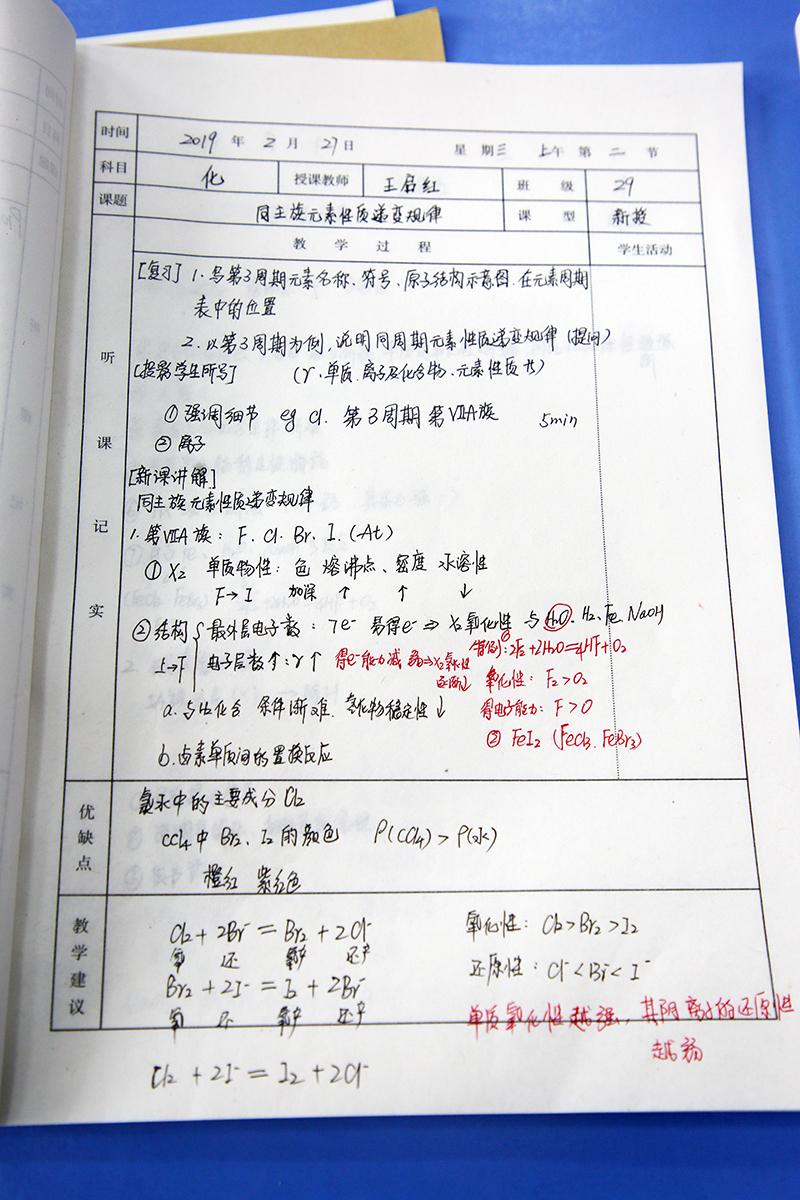 时间 2019 年 2 月 27日 星期三 上午 第 二 节
科目 化 授课教师 王启红 班级 29
课题 同主族元素性质递变规律 课型 新授
听课记实 教学过程 学生活动
[复习] 1. 写第3周期元素名称、符号、原子结构示意图.在元素周期
表中的位置
2. 以第3周期为例,说明同周期元素性质递变规律(提问)
[投影学生所写] (r、单质.离子及化合物、元素性质等)
① 强调细节 eg Cl. 第3周期第ⅦA族 5min
② 离子
[新课讲解]
同主族元素性质递变规律
1. 第ⅦA族: F. Cl. Br. I. (At)
① X2 单质物性: 色 熔沸点、密度 水溶性
F→I 加深 ↑ ↑ ↓
② 结构 { 最外层电子数: 7e⁻ 易得e⁻ ⇒ X2氧化性 与H2O. H2. Fe. NaOH
I→F 电子层数↑: r↑ 得e⁻能力减弱⇒X2氧化性 ① 特例: 2F2+2H2O=4HF+O2
还原↓ 氧化性: F2>O2
a. 与H2化合 条件渐难. 氢化物稳定性↓ 得电子能力: F>O
② FeI2 (FeCl3. FeBr3)
b. 卤素单质间的置换反应
优缺点 氯水中的主要成分 Cl2
CCl4中 Br2、I2的颜色 ρ(CCl4)>ρ(水)
橙红 紫红色
教学建议 Cl2 + 2Br⁻ = Br2 + 2Cl⁻ 氧化性: Cl2>Br2>I2
氧 还 氧产 还产 还原性: Cl⁻<Br⁻<I⁻
Br2 + 2I⁻ = I2 + 2Br⁻
氧 还 氧产 还产 单质氧化性越强, 其阴离子的还原性
越弱
Cl2 + 2I⁻ = I2 + 2Cl⁻